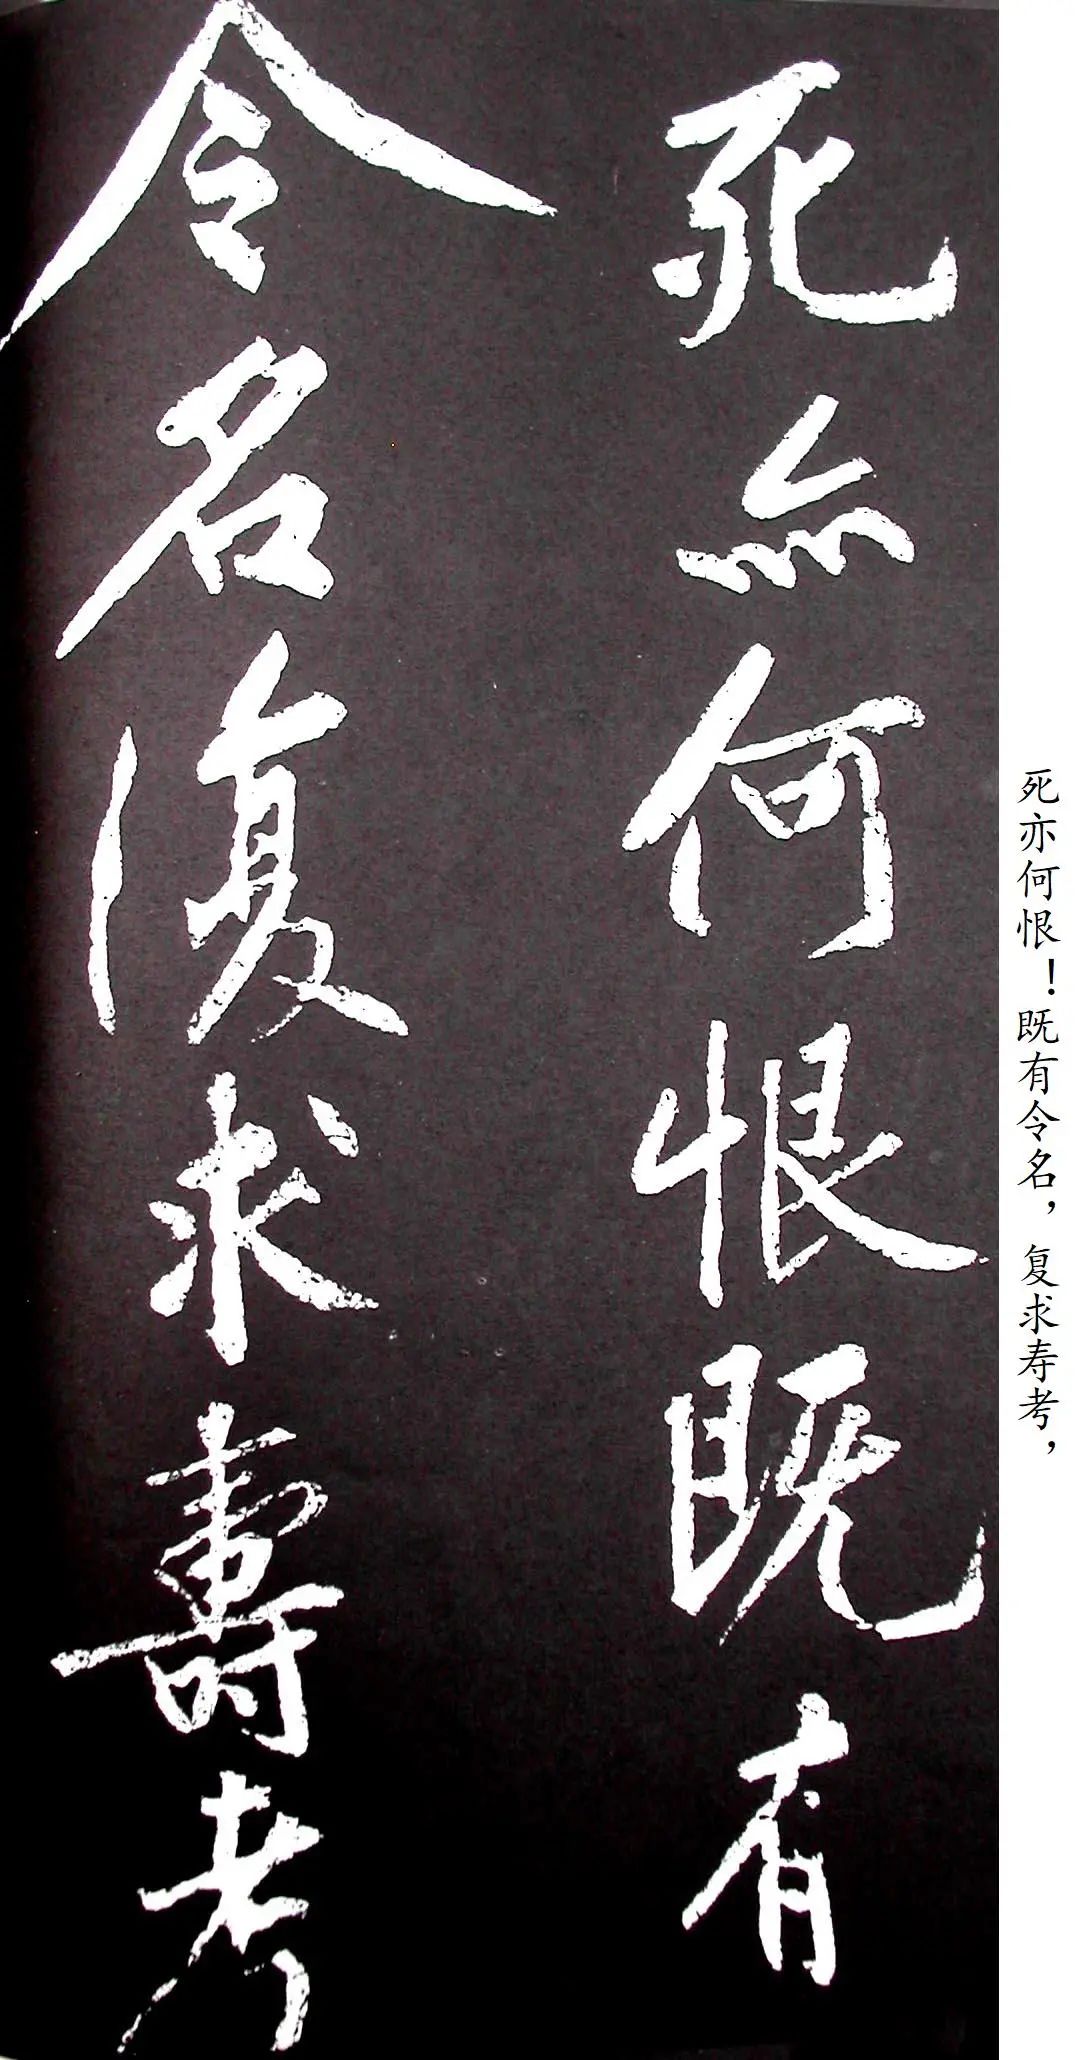 死亦何恨！既有令名，复求寿考，
死亦何恨既有
令名復求壽考